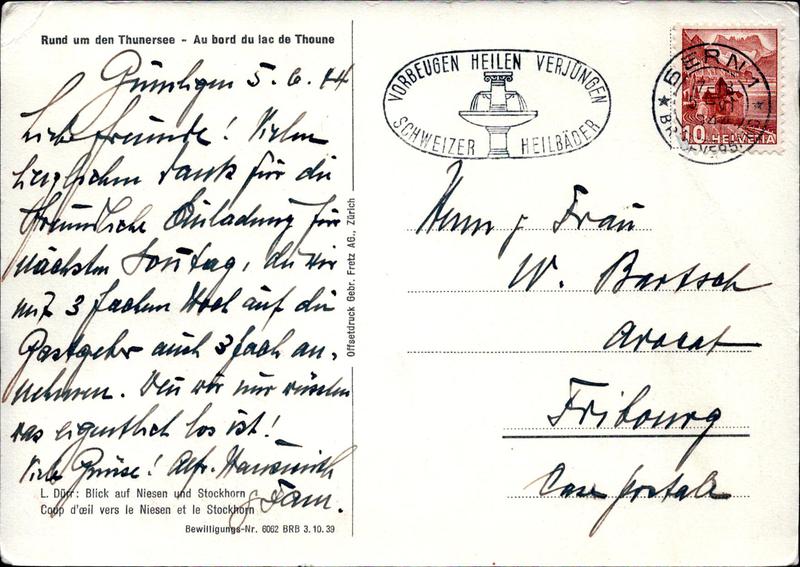 Rund um den Thunersee - Au bord du lac de Thoune
Gümligen 5. 6. 44
Liebe Freunde! Vielen
herzlichen Dank für die
freundliche Einladung für
nächsten Sonntag, die wir
mit 3 fachem Hoch auf die
Gastgeber auch 3 fach an-
nehmen. Den wir nur wüssten
was eigentlich los ist!
Viele Grüsse! Alfr.
& Fam.
L. Dürr: Blick auf Niesen und Stockhorn
Coup d'œil vers le Niesen et le Stockhorn
Bewilligungs-Nr. 6062 BRB 3.10.39
Offsetdruck Gebr. Fretz AG., Zürich
VORBEUGEN HEILEN VERJÜNGEN
SCHWEIZER HEILBÄDER
BERN 1
10 HELVETIA
Herrn & Frau
W. Bartsch
Avocat
Fribourg
Case postale